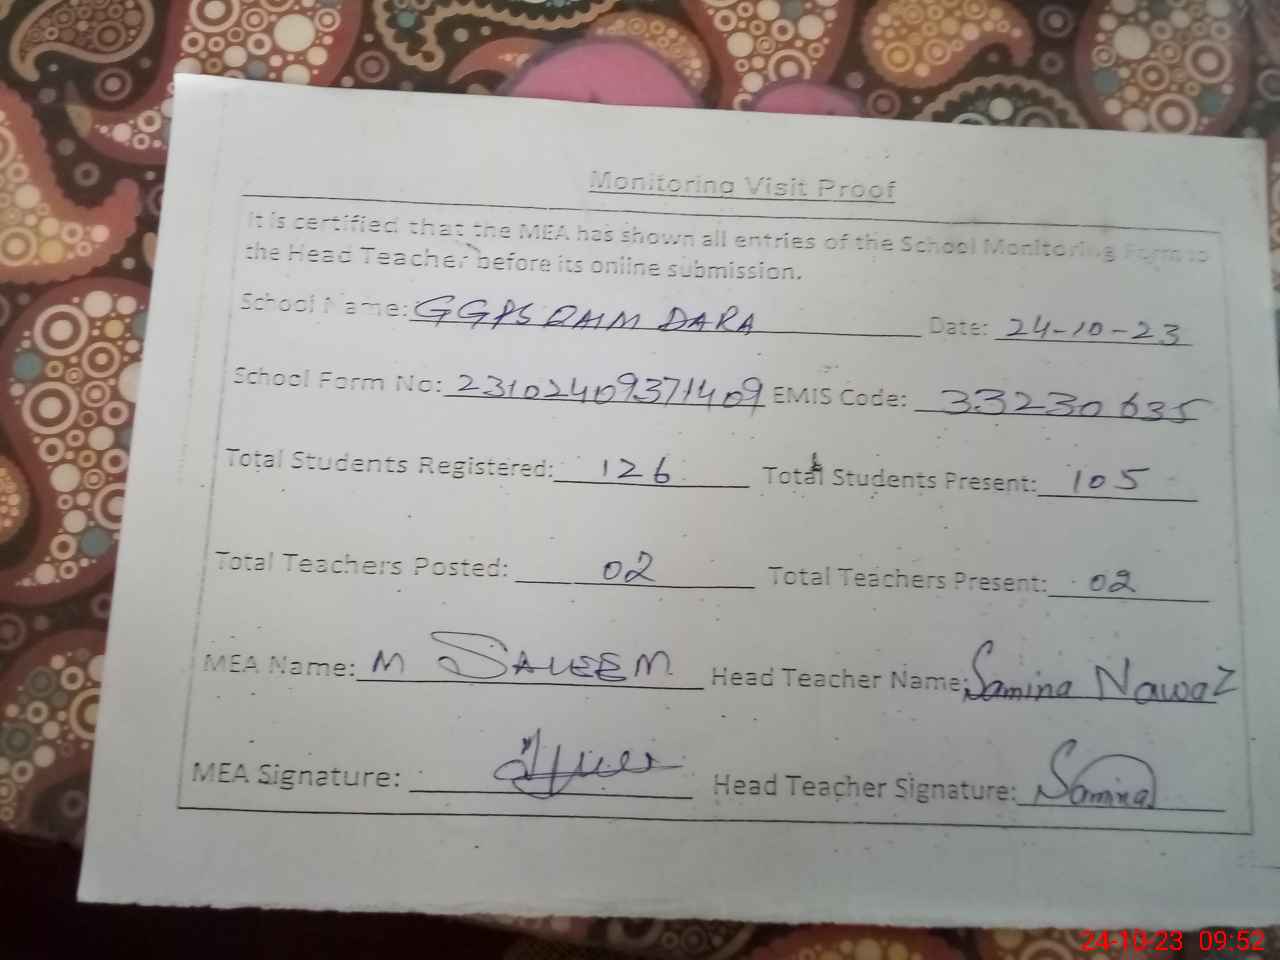 Monitoring Visit Proof
It is certified that the MEA has shown all entries of the School Monitoring Form to
the Head Teacher before its online submission.
School Name: GGPS RAIM DARA Date: 24-10-23
School Form No: 23102409371409 EMIS Code: 33230635
Total Students Registered: 126 Total Students Present: 105
Total Teachers Posted: 02 Total Teachers Present: 02
MEA Name: M SALEEM Head Teacher Name: Samina Nawaz
MEA Signature: Head Teacher Signature: Samina
24-10-23 09:52